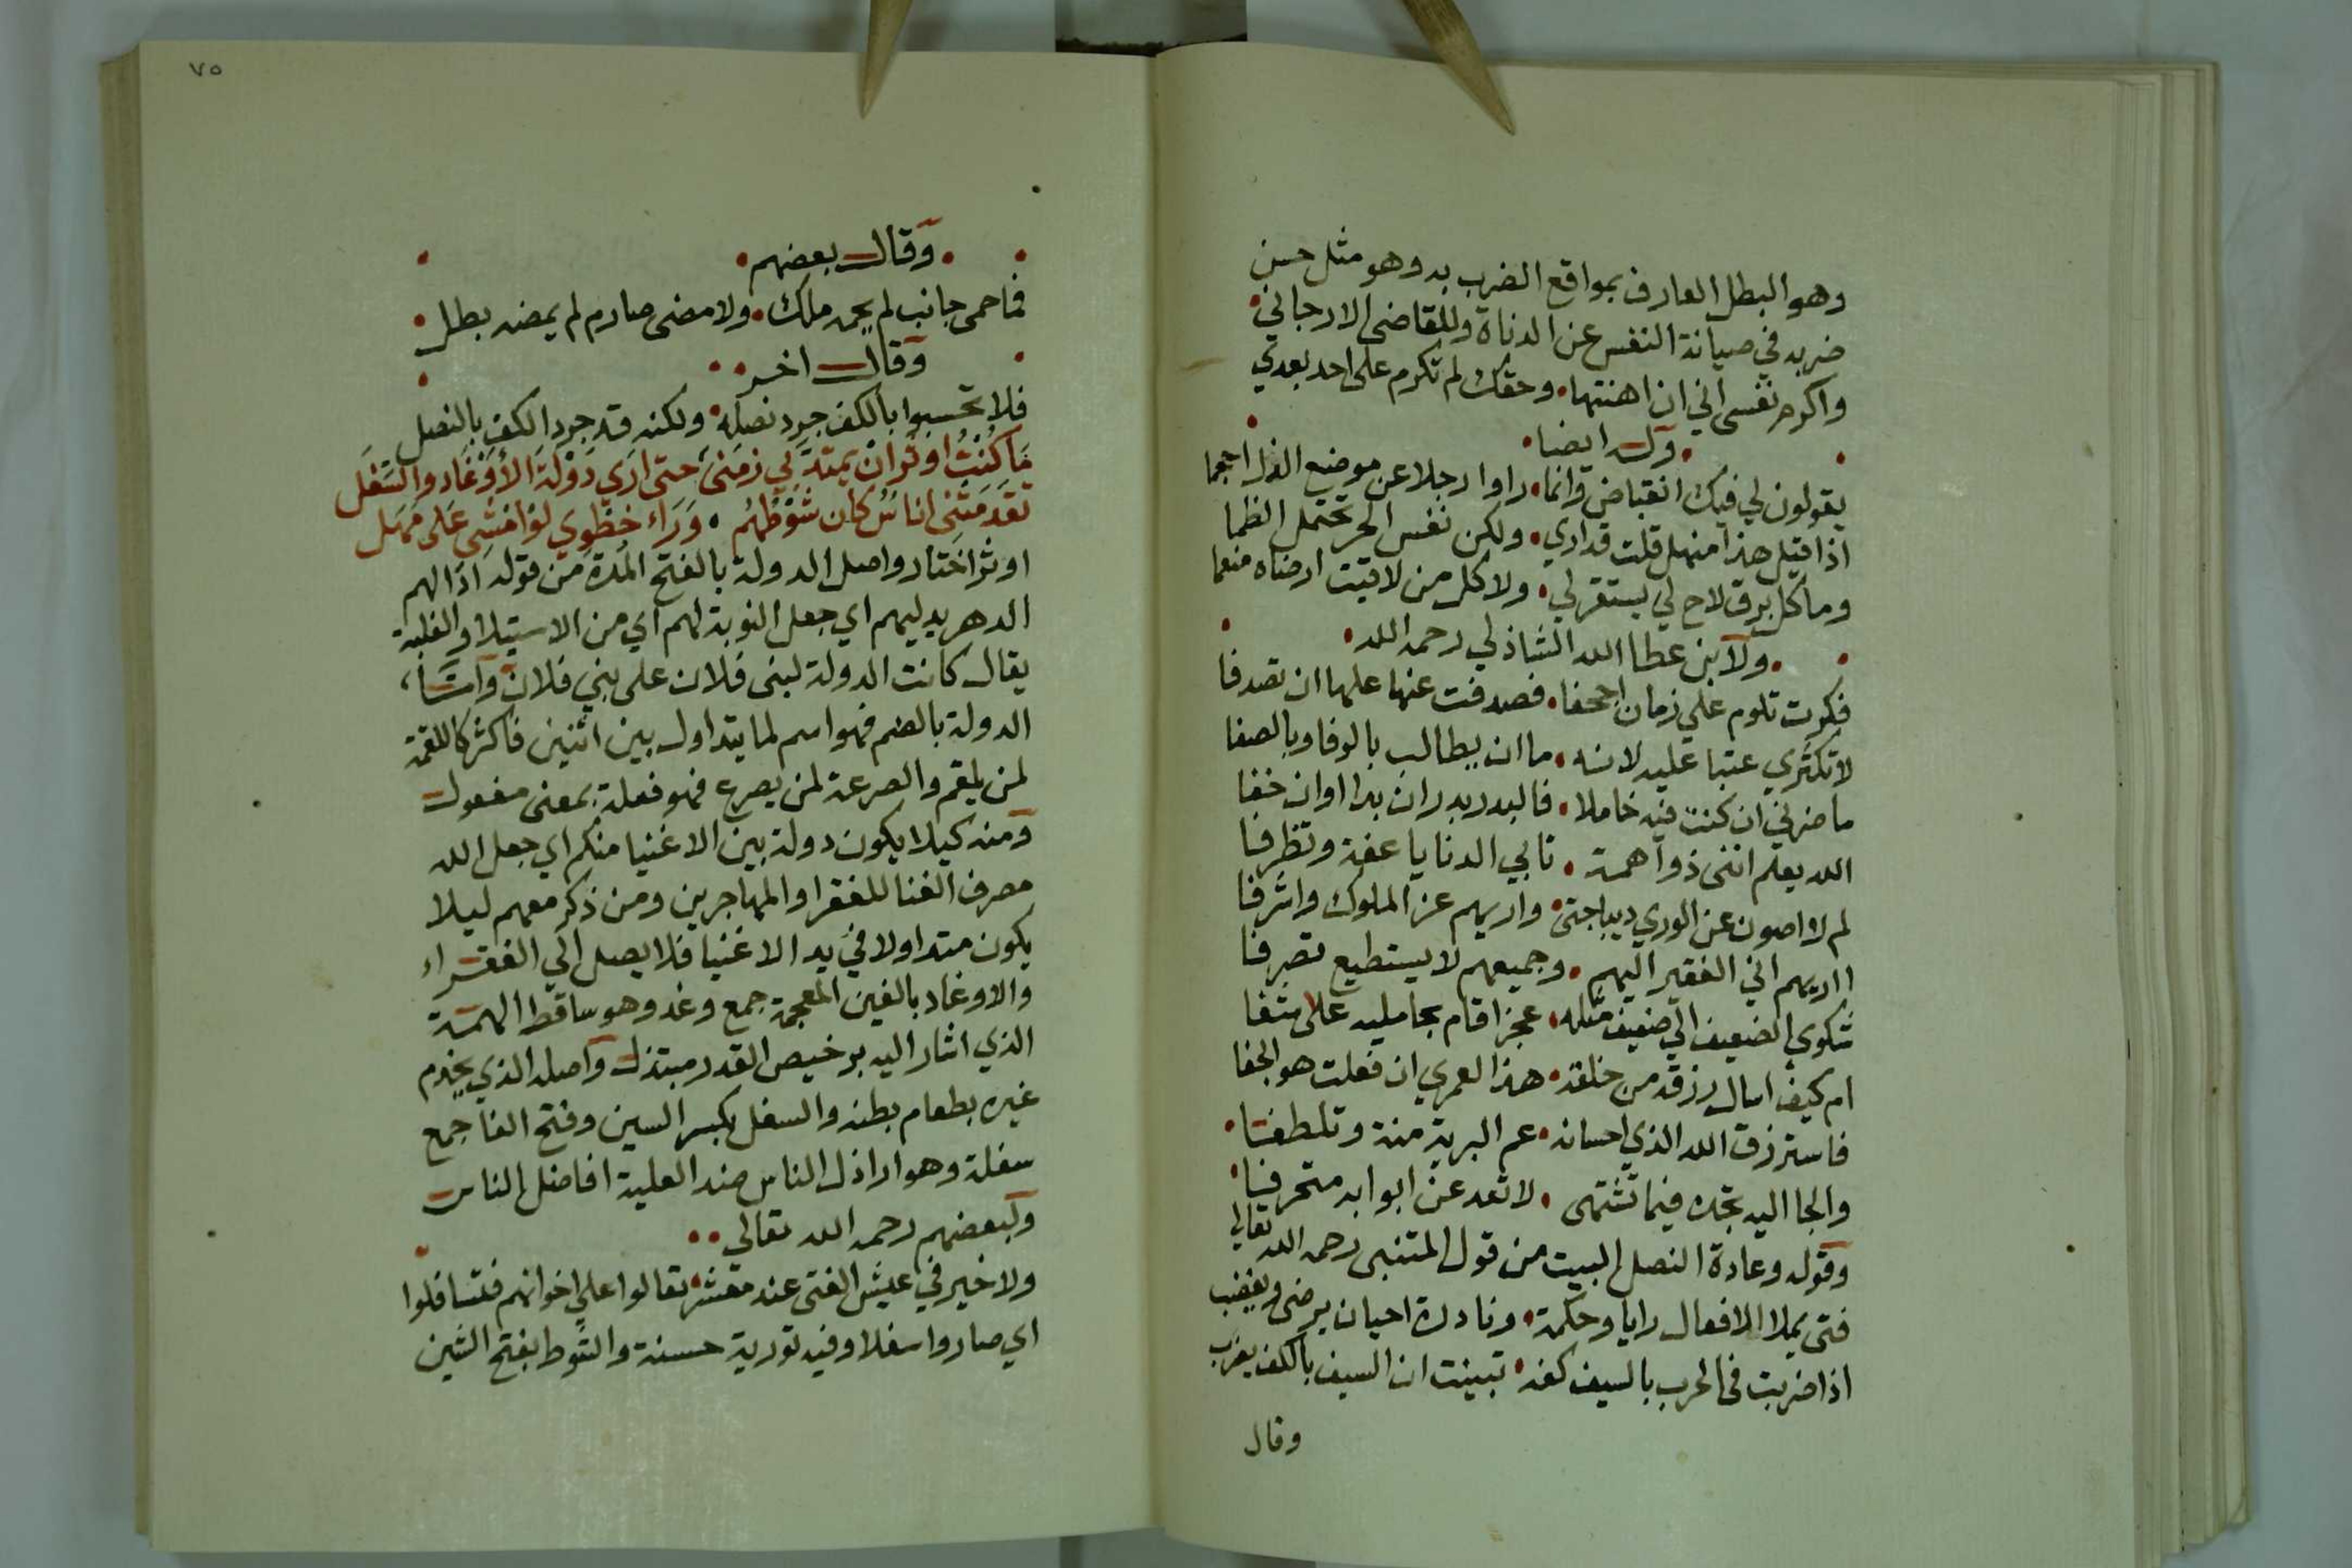 وهو البطل العارف بمواقع الضرب به وهو مثل حسن
ضربه في صيانة النفس عن الدناة وللقاضى الارجاني
واكرم نفسى انى ان اهنتها • وحقك لم تكرم على احد بعدي
• وله ايضا •
يقولون لي فيك انقباض وانما • راوا رجلا عن موضع الذل احجما
اذا قيل هذا منهل قلت قد اري • ولكن نفس الحر تحتمل الظما
وما كل برق لاح لي يستقر لي • ولا كل من لاقيت ارضاه منعما
• ولابن عطا الله الشاذلي رحمه الله •
فكرت تلوم علي زمان اجحفا • فصدفت عنها علها ان تصدفا
لا تكثري عتبا عليه لانه • ما ان يطالب بالوفا وبالصفا
ما ضرني ان كنت فيه خاملا • فالبدر بدر ان بدا اوان خفا
الله يعلم اننى ذوا همة • تابي الدنايا عفة وتظرفا
لم لا اصون عن الوري ديباجتى • واريهم عز الملوك واشرفا
ااريهم اني الفقير اليهم • وجميعهم لا يستطيع تصرفا
شكوي الضعيف الي ضعيف مثله • عجز اقام بحامليه على شفا
ام كيف اسال رزقه من خلقه • هذا لعمري ان فعلت هو الجفا
فاسترزق الله الذي احسانه • عم البرية منة وتلطفا •
والجا اليه تجده فيما تشتهى • لا تعد عن ابوابه متحرفا •
وقوله وعادة النصل البيت من قول المتنبى رحمه الله تعالي
فتى يملا الافعال رايا وحكمة • ونادرة احيان يرضى ويغضب
اذا ضربت فى الحرب بالسيف كفه • تبينت ان السيف بالكف يضرب
وقال
٧٥
• وقال بعضهم •
فما حمى جانب لم يحمه ملك • ولا مضى صارم لم يمضه بطل •
وقال اخر • •
فلا تحسبوا بالكف جرد نصله • ولكنه قد جرد الكف بالنصل
مَا كُنْتُ اوثر ان يمتد بي زمنى • حتى اري دولة الأوغاد والسفل
تقدمتنى اناس كان شوطهم • وراء خطوي لو امشى على مهل
اوثر اختار واصل الدولة بالفتح المدة من قوله اذا لهم
الدهر يديلهم اي جعل النوبة لهم اي من الاستيلا والغلبة
يقال كانت الدولة لبنى فلان على بني فلان وامّا
الدولة بالضم فهو اسم لما يتداول بين اثنين فاكثر كاللقمة
لمن يلقم والصرعة لمن يصرع فهو فعلة بمعنى مفعول
ومنه كيلا يكون دولة بين الاغنيا منكم اي جعل الله
مصرف الغنا للفقرا والمهاجرين ومن ذكر معهم ليلا
يكون متداولا في يد الاغنيا فلا يصل الي الفقراء
والاوغاد بالغين المعجمة جمع وغد وهو ساقط الهمة
الذي اشار اليه برخيص القدر مبتذل واصله الذي يخدم
غيره بطعام بطنه والسفل بكسر السين وفتح الفا جمع
سفلة وهو اراذل الناس ضد العلية افاضل الناس
ولبعضهم رحمه الله تعالي • •
ولا خير في عيش الفتى عند معشر • تعالوا علي اخوانهم فتسافلوا
اي صاروا سفلا وفيه تورية حسنة والشوط بفتح الشين